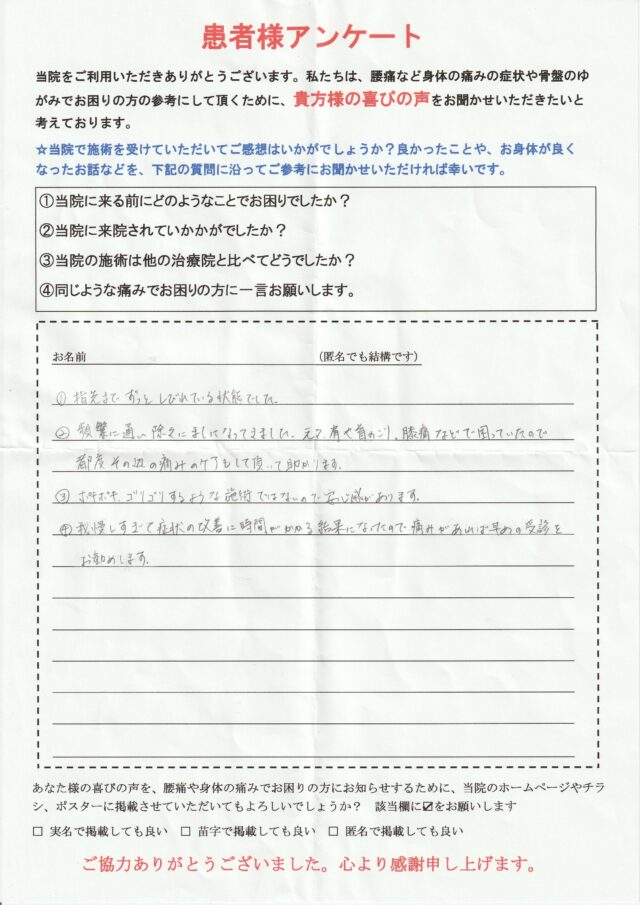 患者様アンケート
当院をご利用いただきありがとうございます。私たちは、腰痛など身体の痛みの症状や骨盤のゆ
がみでお困りの方の参考にして頂くために、貴方様の喜びの声をお聞かせいただきたいと
考えております。
☆当院で施術を受けていただいてご感想はいかがでしょうか？良かったことや、お身体が良く
なったお話などを、下記の質問に沿ってご参考にお聞かせいただければ幸いです。
①当院に来る前にどのようなことでお困りでしたか？
②当院に来院されていかかがでしたか？
③当院の施術は他の治療院と比べてどうでしたか？
④同じような痛みでお困りの方に一言お願いします。
お名前 （匿名でも結構です）
① 指先まで ずっと しびれている状態でした。
② 頻繁に通い 除々にましになってきました。元々 肩や首のこり、膝痛などで困っていたので
都度 その辺の痛みのケアもして頂いて助かります。
③ ボキボキ、ゴリゴリするような施術ではないので安心感があります。
④ 我慢しすぎて症状の改善に時間がかかる結果になったので痛みがあれば早めの受診を
お勧めします。
あなた様の喜びの声を、腰痛や身体の痛みでお困りの方にお知らせするために、当院のホームページやチラ
シ、ポスターに掲載させていただいてもよろしいでしょうか？ 該当欄に☑をお願いします
□ 実名で掲載しても良い □ 苗字で掲載しても良い □ 匿名で掲載しても良い
ご協力ありがとうございました。心より感謝申し上げます。